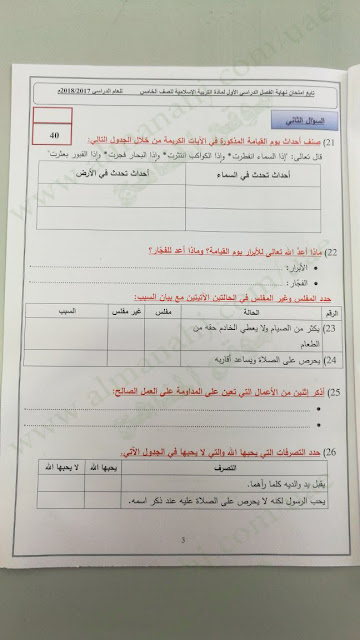 تابع امتحان نهاية الفصل الدراسي الأول لمادة التربية الإسلامية للصف الخامس للعام الدراسي 2018/2017م
السؤال الثاني
40
21) صنف أحداث يوم القيامة المذكورة في الآيات الكريمة من خلال الجدول التالي:
قال تعالى: "إذا السماء انفطرت* وإذا الكواكب انتثرت* وإذا البحار فجرت* وإذا القبور بعثرت"
أحداث تحدث في السماء أحداث تحدث في الأرض
22) ماذا أعدّ الله تعالى للأبرار يوم القيامة؟ وماذا أعد للفجّار؟
• الأبرار:
• الفجّار:
حدد المفلس وغير المفلس في الحالتين الآتيتين مع بيان السبب:
الرقم الحالة مفلس غير مفلس السبب
23) يكثر من الصيام ولا يعطي الخادم حقه من
الطعام
24) يحرص على الصلاة ويساعد أقاربه
25) أذكر إثنين من الأعمال التي تعين على المداومة على العمل الصالح:
26) حدد التصرفات التي يحبها الله والتي لا يحبها في الجدول الآتي.
التصرف يحبها الله لا يحبها الله
يقبل يد والديه كلما رآهما.
يحب الرسول لكنه لا يحرص على الصلاة عليه عند ذكر اسمه.
3
www.almanahj.com/uae